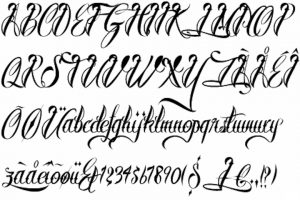 ABCDEFGHIJKLMNOP
QRSTUVWXYZÀÅÉÎ
ÕØÜabcdefghijklmnopqrstuvwxy
zàåéîõøü&1234567890($£€.,!?)